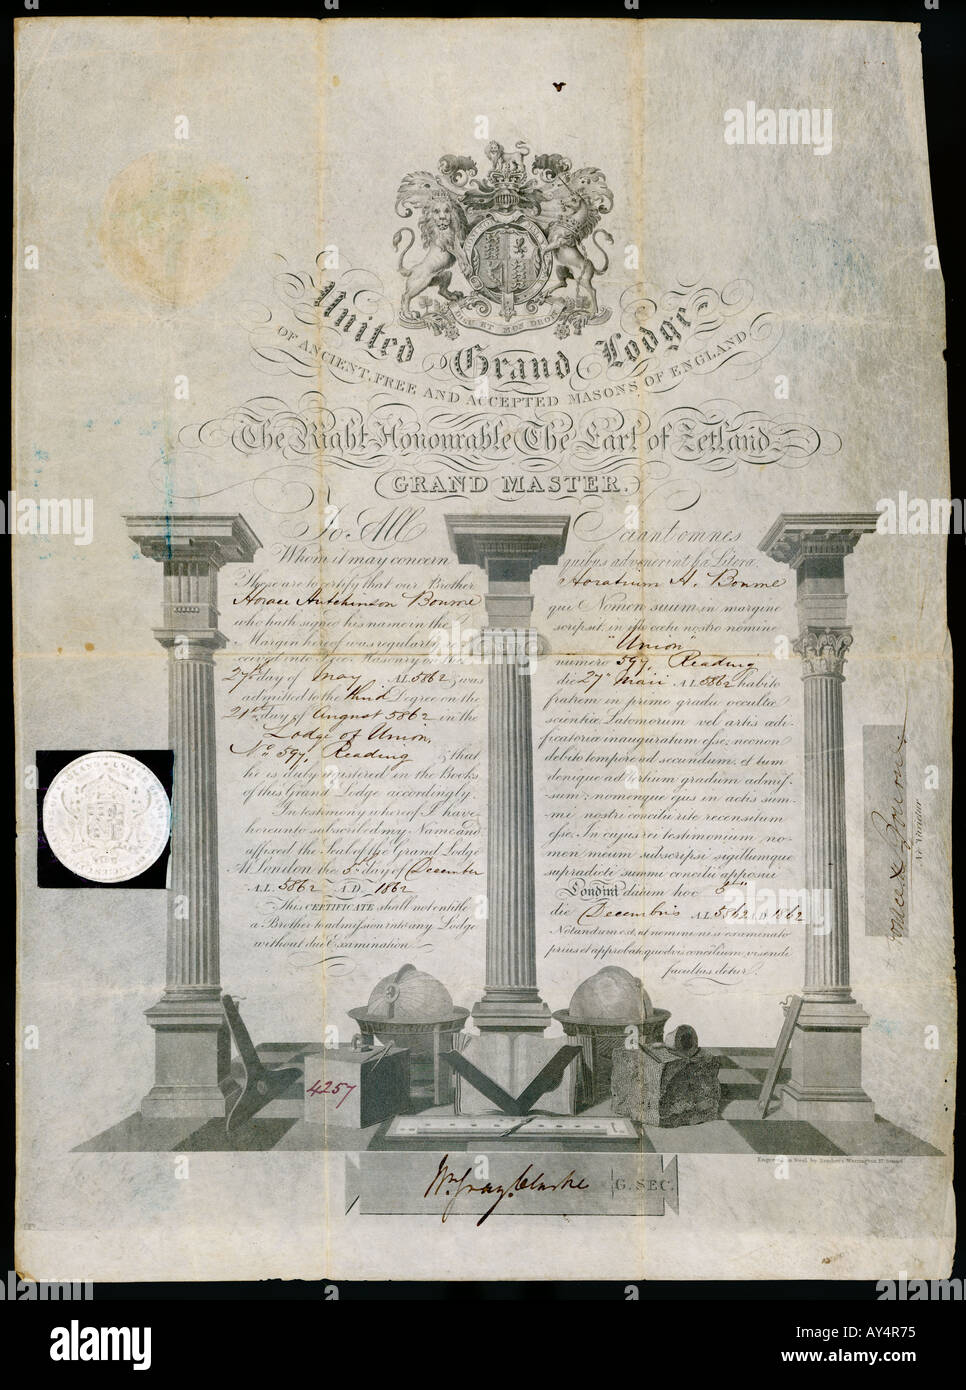 DIEU ET MON DROIT
United Grand Lodge
OF ANCIENT, FREE AND ACCEPTED MASONS OF ENGLAND
The Right Honourable The Earl of Zetland
GRAND MASTER.
To All
Whom it may concern
These are to certify that our Brother
Horace Hutchinson Bourne
who hath signed his name in the
Margin hereof was regularly re-
ceived into Free Masonry on the
27th day of May AL 5862 & was
admitted to the third Degree on the
21st day of August 5862 in the
Lodge of Union,
No 597, Reading & that
he is duly registered in the Books
of this Grand Lodge accordingly.
In testimony whereof I have
hereunto subscribed my Name and
affixed the Seal of the Grand Lodge
At London the 8th day of December
AL. 5862 A.D. 1862
This CERTIFICATE shall not entitle
a Brother to admission into any Lodge
without due Examination
Sciant omnes
quibus advenerint hæ Literæ,
Horatium H. Bourne
qui Nomen suum in margine
scripsit, in cœtu nostro nomine
"Union"
numero 597, Reading
die 27o Maii AL 5862 habito
fratrem in primo gradu occultæ
scientiæ Latomorum vel artis ædi-
ficatoriæ inauguratum esse; necnon
debito tempore ad secundum, et tum
denique ad tertium gradum admis-
sum; nomenque ejus in actis sum-
mi nostri concilii rite recensitum
esse. In cujus rei testimonium no-
men meum subscripsi sigillumque
supradicti summi concilii apposui
Londini datum hoc 8vo
die Decembris AL 5862 A.D. 1862
Notandum est, ut nemini nisi examinato
prius et approbato, quodvis concilium, visendi
facultas detur.
Ne Varietur
4257
Wm Gray Clarke G. SEC.
alamy
www.alamy.com
AY4R75